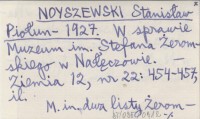 NOYSZEWSKI Stanisław
Piołun- 1927. W sprawie
Muzeum im. Stefana Żerom-
skiego w Nałęczowie. -
Ziemia 12, nr 22: 454-457,
il.
M. in. dwa listy Żerom-